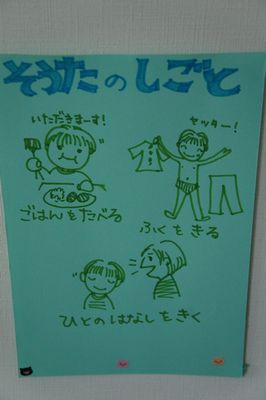 そうたのしごと
いただきまーす!
セッター!
ごはんをたべる
ふくをきる
ひとのはなしをきく